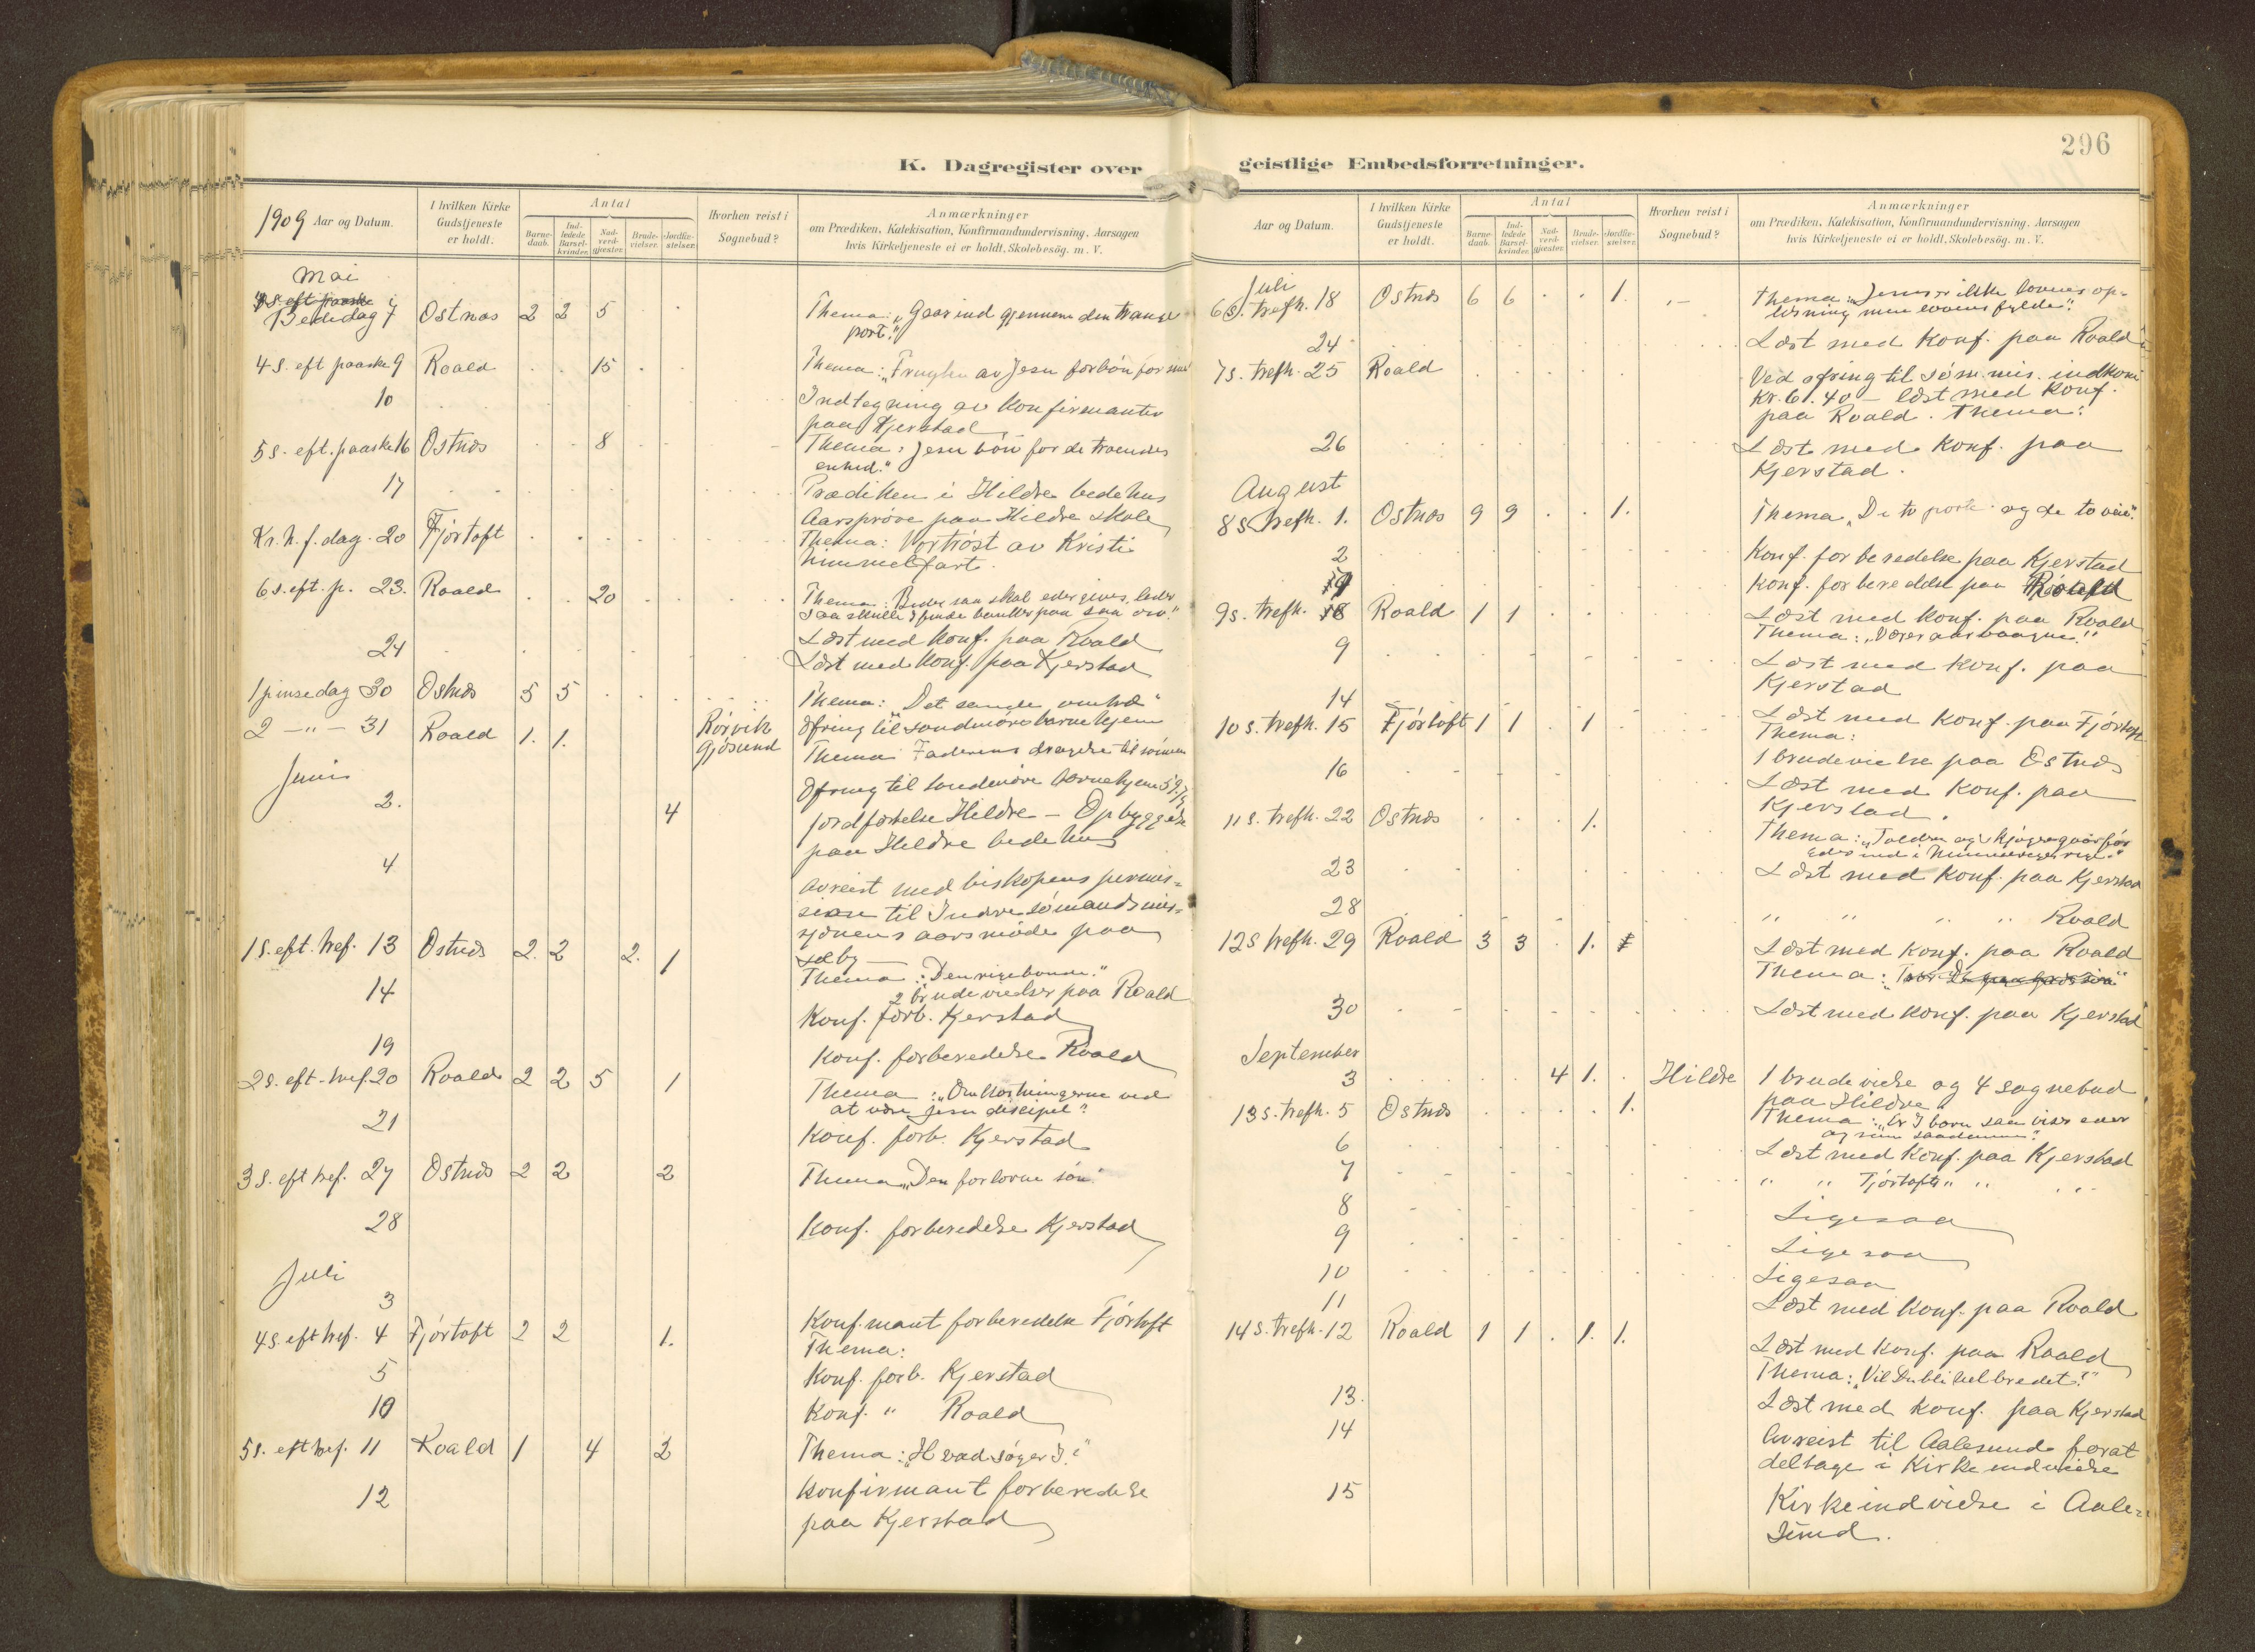 296
K. Dagregister over geistlige Embedsforretninger.
1909 Aar og Datum.
I hvilken Kirke Gudstjeneste er holdt.
Antal
Barne-daab.
Ind-ledede Barsel-kvinder.
Nad-verd-gjester.
Brude-vielser.
Jordfæ-stelser.
Hvorhen reist i Sognebud?
Anmærkninger
om Prædiken, Katekisation, Konfirmandundervisning, Aarsagen
hvis Kirketjeneste ei er holdt, Skolebesög. m. V.
Mai
Bededag 7 Østnæs 2 2 5 Thema: „Gaar ind gjennem den trange
port."
4 S. eft paaske 9 Roald 15 Thema: „Frugten av Jesu forbøn for sine
10 Indtegning av Konfirmanter
paa Kjerstad
5 S. eft. paaske 16 Østnæs 8 Thema: Jesu bøn for de troendes
enhed."
17 Prædiken i Hildre bedehus
Aarsprøve paa Hildre skole
Kr. h. f. dag. 20 Fjørtoft Thema: Vor trøst av Kristi
himmelfart.
6 s. eft. p. 23. Roald 20 Thema: Beder saa skal eder gives, leder
saa skulle I finde banker paa saa osv."
Læst med konf. paa Roald
24 Læst med konf. paa Kjerstad
1 pinsedag 30 Østnæs 5 5 Thema: „Det
2 -"- 31 Roald 1. 1. Rørvik Ofring til søndmøre barnehjem
Gjøsund Thema Faderens dragelse til sønnen
Juni
Ofring til søndmøre barnehjem
2. 4 Jordfæstelse Hildre – Opbyggelse
paa Hildre bedehus
4 Avreist med biskopens permis-
sion til Indre sømandsmis-
sjonens aarsmøde paa
1 S. eft. tref. 13 Østnæs 2. 2 2. 1 Thema: „Den rige bonde."
2 brudevielser paa Roald
14 Konf. forb. Kjerstad
19 Konf. forberedelse Roald
2 S. eft. tref. 20 Roald 2 2 5 1 Thema: „Omkostningerne ved
at være Jesu discipel"
21 Konf. forb. Kjerstad
3 S. eft tref. 27 Østnæs 2 2 2 Thema „Den forlorne søn"
28 Konf. forberedelse Kjerstad
Juli
3 Konfmant forberedelse Fjørtoft
4 S. eft tref. 4 Fjørtoft 2 2 1. Thema:
5 Konf. forb. Kjerstad
10 Konf. " Roald
5 S. eft tref. 11 Roald 1 4 2 Thema: „Hvad søger I?"
12 Konfirmant forberedelse
paa Kjerstad
Aar og Datum.
I hvilken Kirke Gudstjeneste er holdt.
Antal
Barne-daab.
Ind-ledede Barsel-kvinder.
Nad-verd-gjester.
Brude-vielser.
Jordfæ-stelser.
Hvorhen reist i Sognebud?
Anmærkninger
om Prædiken, Katekisation, Konfirmandundervisning, Aarsagen
hvis Kirketjeneste ei er holdt, Skolebesög. m. V.
Juli
6 S. trefh. 18 Østnæs 6 6 1. Thema: „Jesus er ikke lovens op-
løsning men lovens fylde".
24 Læst med konf. paa Roald
7 S. trefh. 25 Roald Ved ofring til søm. mis. indkom
Kr. 61.40 – læst med konf.
paa Roald. Thema:
26 Læst med konf. paa
Kjerstad.
August
8 S trefh. 1. Østnæs 9 9 1. Thema „De to porte og de to veie".
2 Konf. forberedelse paa Kjerstad
7 Konf. forberedelse paa Roald
9 S. trefh. 8 Roald 1 1 Læst med konf. paa Roald
Thema: „Være aarvaagne."
9 Læst med konf. paa
Kjerstad
14 Læst med konf. paa Fjørtoft
10 S. trefh. 15 Fjørtoft 1 1 1 Thema:
1 brudevielse paa Østnæs
16 Læst med konf. paa
Kjerstad.
11 S. trefh. 22 Østnæs 1. Thema: „Toldere og skjøger gaar før
eder ind i himmeriges rige."
23 Læst med konf. paa Kjerstad
28 " " " " Roald
12 S trefh. 29 Roald 3 3 1. Læst med konf. paa Roald
Thema:
30 Læst med konf. paa Kjerstad
September
3 4 1. Hildre 1 brudevielse og 4 sognebud
paa Hildre
13 S. trefh. 5 Østnæs 1. Thema: „Er I børn saa viser eder
og som saadanne."
6 Læst med konf. paa Kjerstad
7 " " Fjørtoft " "
8 Ligesaa
9 Ligesaa
10 Ligesaa
11 Læst med konf. paa Roald
14 S. trefh. 12 Roald 1 1 1. 1. Læst med konf. paa Roald
Thema: „Vil Du bli helbredet?"
13. Læst med konf. paa Kjerstad
14 Avreist til Aalesund forat
deltage i Kirkeindvielse
15 Kirkeindvielse i Aale-
sund.